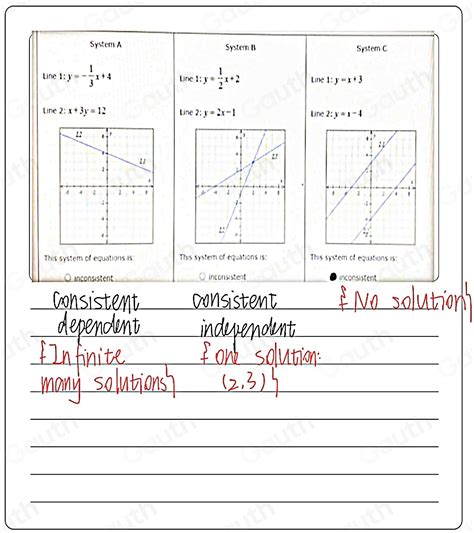 System A
Line 1: y = -1/3 x + 4
Line 2: x + 3y = 12
This system of equations is:
inconsistent
System B
Line 1: y = 1/2 x + 2
Line 2: y = 2x - 1
This system of equations is:
inconsistent
System C
Line 1: y = x + 3
Line 2: y = x - 4
This system of equations is:
inconsistent
Consistent
dependent
{Infinite
many solutions}
consistent
independent
{one solution:
(2,3)}
{No solution}
Gauth